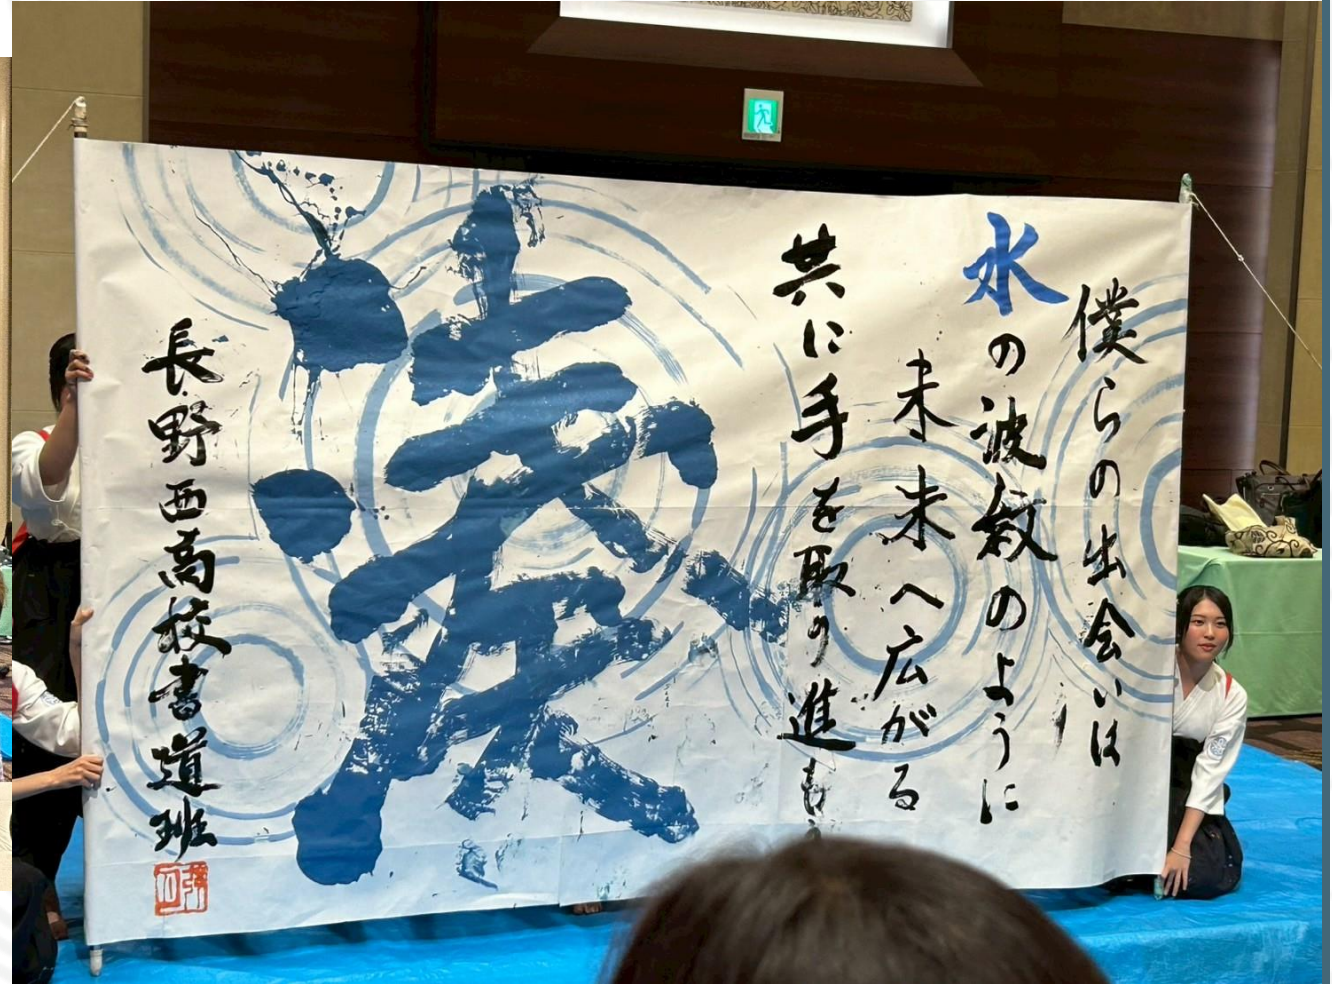 僕らの出会いは
水の波紋のように
未来へ広がる
共に手を取り進も
湊
長野西高校書道班